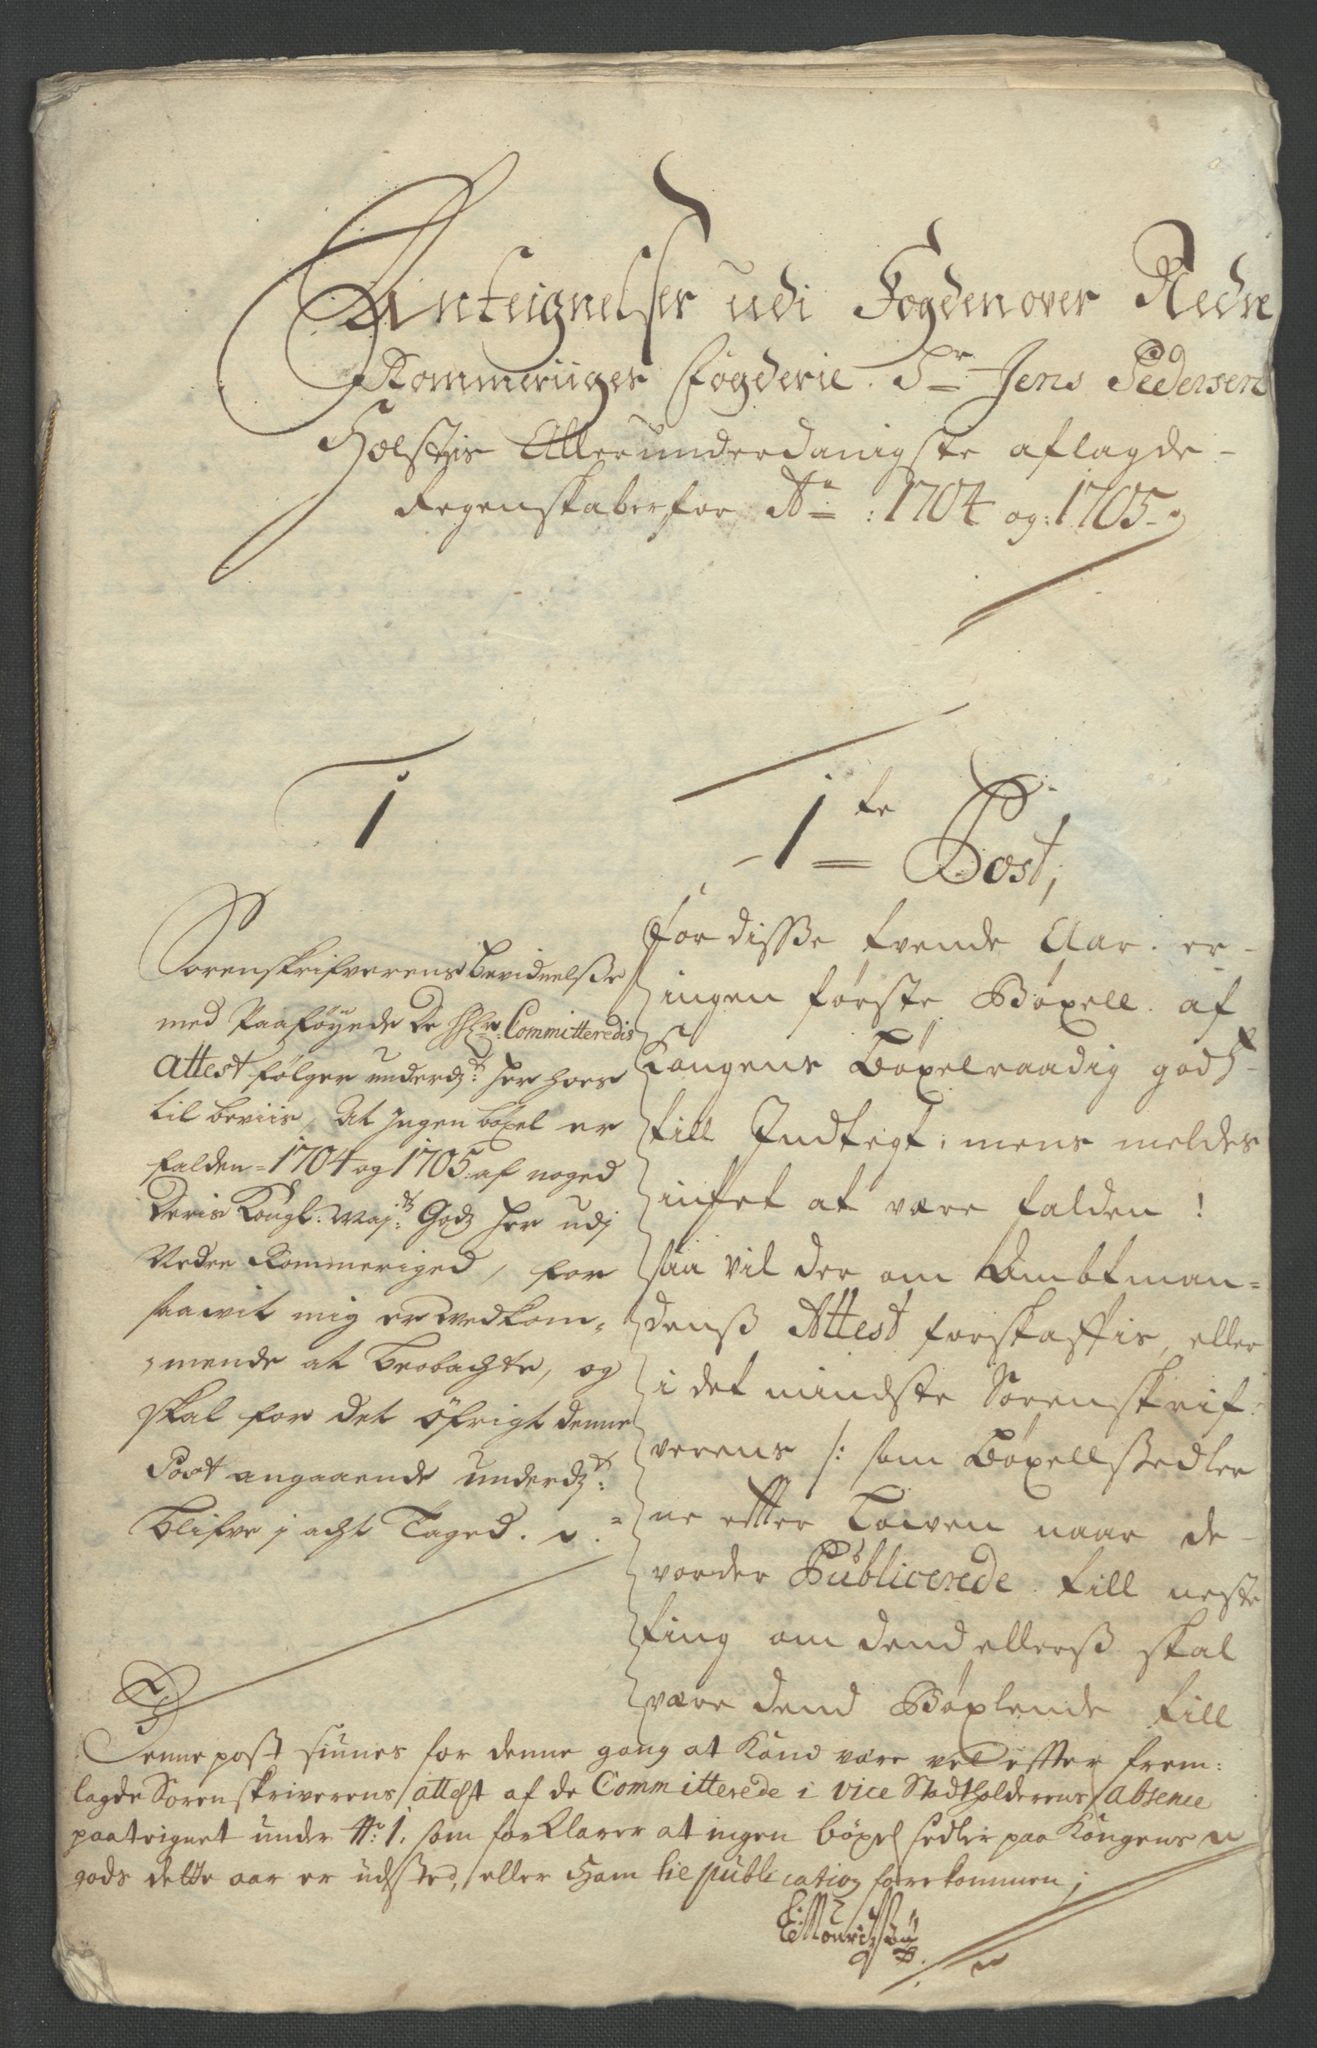 Anteignelser udi Fogden over Nedre
Rommeriiges fogderie Sr Jens Pedersen
Holstis Allerunderdanigste aflagde
Regenskaber for Ao : 1704 og: 1705
1
Sorenskrifverens bevidnelsße
med Paaføyede De HHr: Committeredis
attest følger underdt: her hoes
til beviis, At Ingen böxel er
falden 1704 og 1705: af noged
Deris Kongl: May:ts Godz her udj
Nedre Rommeriged, for
saawit mig er wedkom-
mende at beobachte, og
skal for det öfrigt denne
Post angaaende underdt:
blifve j acht Taged.
1te Post,
For disße tvende Aar er
ingen første Bøxell af
Kongens Bøxelraadig godß
till Indtegt: mens meldes
intet at være falden !
saa vil der om Ambtman-
denß Attest forskaffis, eller
i det mindste Sorenskrif-
verens /: som Bøxellßedler
ne efter Lowen naar de
vorder Publicerede till neste
ting om dend ellerß skal
være dend Bøxlende till
Denne post siunes for denne gang at kand være vel efter frem:
lagde Sorenskriverens attest af de Committerede i vice Stadtholderens absence
paateignet under No: 1. som forklarer at ingen böxel sedler paa Kongens
gods dette aar er udsted, eller ham til publication forekommen;